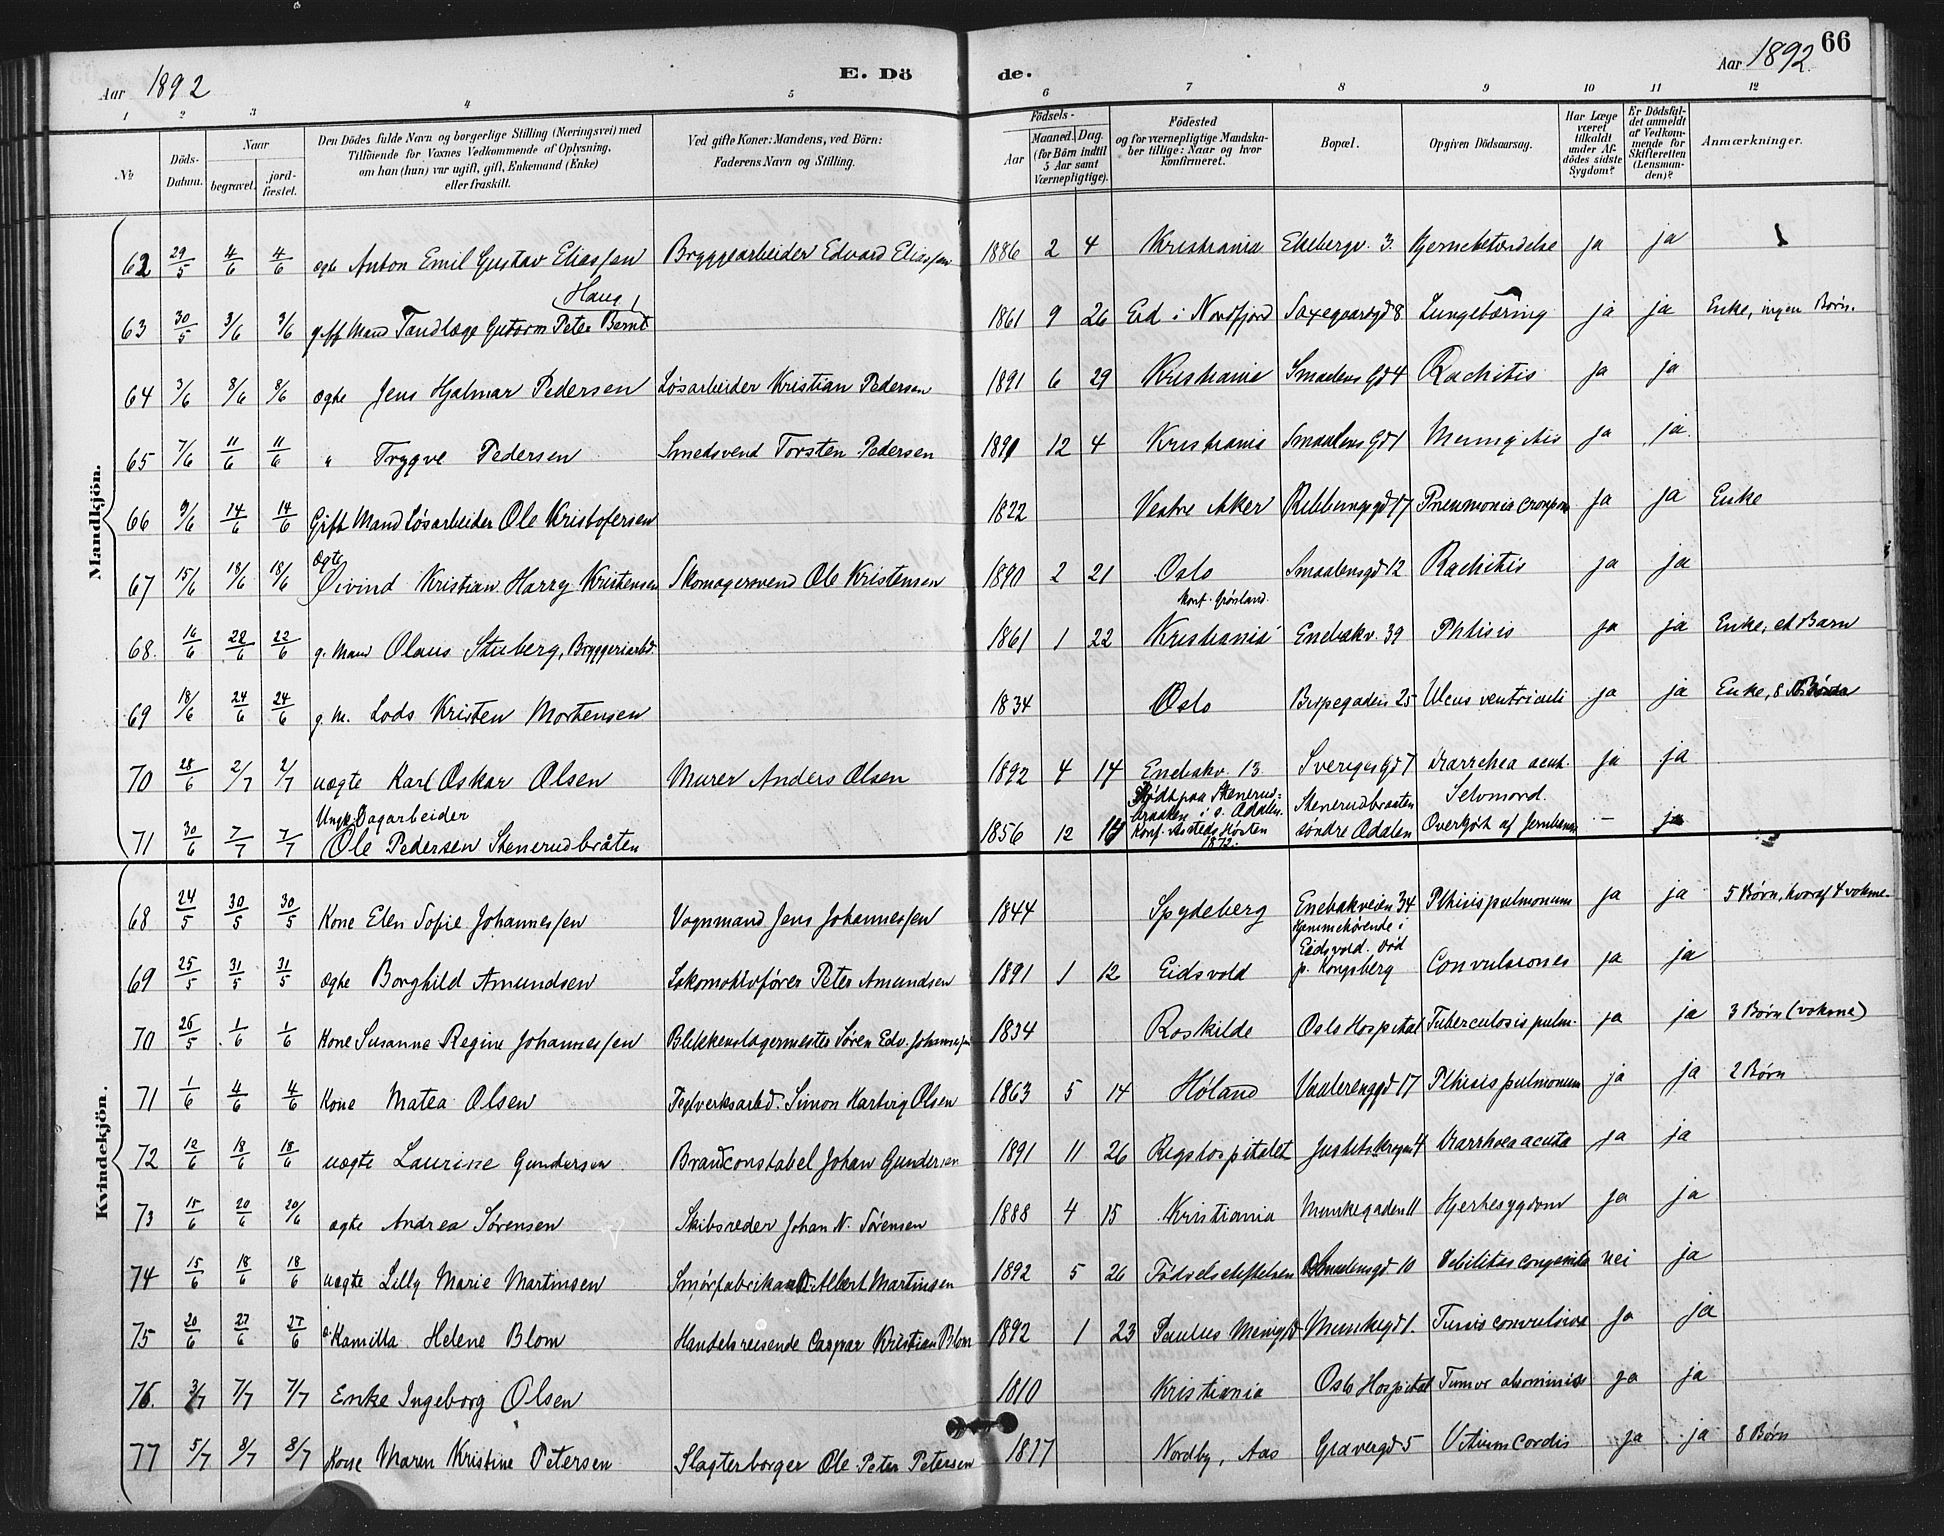 66
Aar 1892 E. Dö de. Aar 1892.
1 2 3 4 5 6 7 8 9 10 11 12
No. Döds-Datum. Naar begravet. jordfæstet. Den Dödes fulde Navn og borgerlige Stilling (Næringsvei) med Tilföiende for Voxnes Vedkommende af Oplysning, om han (hun) var ugift, gift, Enkemand (Enke) eller fraskilt. Ved gifte Koner: Mandens, ved Börn: Faderens Navn og Stilling. Födsels- Aar Maaned. Dag. (for Börn indtil 5 Aar samt Værnepligtige). Födested og for værnepligtige Mandskaber tillige: Naar og hvor konfirmeret. Bopæl. Opgiven Dödsaarsag. Har Læge været tilkaldt under Afdödes sidste Sygdom? Er Dödsfaldet anmeldt af Vedkommende for Skifteretten (Lensmanden)? Anmærkninger.
Mandkjön.
62 29/5 4/6 4/6 ægte Anton Emil Gustav Eliassen Bryggearbeider Edvard Eliassen 1886 2 4 Kristiania Ekebergv. 3. Hjernebetændelse ja ja
63 30/5 3/6 3/6 gift Mand Tandlæge Gutorm Peter Bernt Haug 1861 9 26 Eid i Nordfjord Saxegaardgd 8 Lungetæring ja ja Enke, ingen Børn.
64 3/6 8/6 8/6 ægte Jens Hjalmar Pedersen Løsarbeider Kristian Pedersen 1891 6 29 Kristiania Smaalens Gd 4 Rachitis ja ja
65 7/6 11/6 11/6 " Trygve Pedersen Smedsvend Torsten Pedersen 1891 12 4 Kristiania Smaalens Gd 1 Meningitis ja ja
66 9/6 14/6 14/6 Gift Mand Løsarbeider Ole Kristofersen 1822 Vestre Aker Ribbungsgd 17 Pneumonia croupou ja ja Enke
67 15/6 18/6 18/6 Ægte Øivind Kristian Harry Kristensen Skomagersvend Ole Kristensen 1890 2 21 Oslo Smaalensgd 12 Rachitis ja ja
68. 16/6 22/6 22/6 g. Mand Olaus Stuberg, Bryggeriarbd. 1861 1 22 Konf. Grønland. Kristiania Enebakv. 39 Phtisis ja ja Enke, et Barn
69 18/6 24/6 24/6 g. M. Lods Kristen Mortensen 1834 Oslo Bispegaden 25 Ulcus ventriculi ja ja Enke, 8
70 28/6 2/7 2/7 uægte Karl Oskar Olsen Murer Anders Olsen 1892 4 14 Enebakv. 13 Sveriges Gd 7 Diarrhea acut. ja ja
71 30/6 7/7 7/7 Ungk. Dagarbeider Ole Pedersen Stenerudbråten 1856 12 Født paa Stenerudbraaten i s. Adalen. Konf. Høsten 1872. Stenerudbraaten søndre Adalen Selvmord. Overkjørt af Jernbanen – ja
Kvindekjön.
68 24/5 30/5 30/5 Kone Elen Sofie Johannessen Vognmand Jens Johannessen 1844 Spydeberg Enebakveien 34 Phtisis pulmonum ja ja 5 Børn, hvoraf 4 voksne
69 25/5 31/5 31/5 Ægte Borghild Amundsen Lokomotivfører Peter Amundsen 1891 1 12 Eidsvold Hjemmehørende i Eidsvold. død p. Kongsberg Convulsiones ja ja
70 26/5 1/6 1/6 Kone Susanne Regine Johannessen Blikkenslagermester Søren Edv. Johannessen 1834 Roskilde Oslo Hospital Tuberculosis pulm. ja ja 3 Børn (voksne)
71 1/6 4/6 4/6 Kone Matea Olsen Teglverksarbd. Simon Hartvig Olsen 1863 5 14 Høland Vaalerenggd 17 Phtisis pulmonum ja ja 2 Børn
72 12/6 18/6 18/6 uægte Laurine Gundersen Brandconstabel Johan Gundersen 1891 11 26 Rigshospitalet 4 Diarrhoea acuta ja ja
73 15/6 20/6 20/6 ægte Andrea Sørensen Skibsreder Johan N. Sørensen 1888 4 15 Kristiania Munkegaden 11 Hjertesygdom ja ja
74 15/6 18/6 18/6 uægte Lilly Marie Martinsen Smørfabrikand Albert Martinsen 1892 5 26 Fødselsstiftelsen Smaalensgd 10 Debilitas congenita nei ja
75 20/6 27/6 27/6 Kamilla Helene Blom Handelsreisende Caspar Kristian Blom 1892 1 23 Paulus Menighd Munkegd 1. Tussis convulsiva ja ja
76. 3/7 7/7 7/7 Enke Ingeborg Olsen 1810 Kristiania Oslo Hospital Tumor abdominis ja ja
77 5/7 8/7 8/7 Kone Maren Kristine Petersen Slagterborger Ole Peter Petersen 1817 Nordby, Aas Gravergd 5 Vitium Cordis ja ja 8 Børn